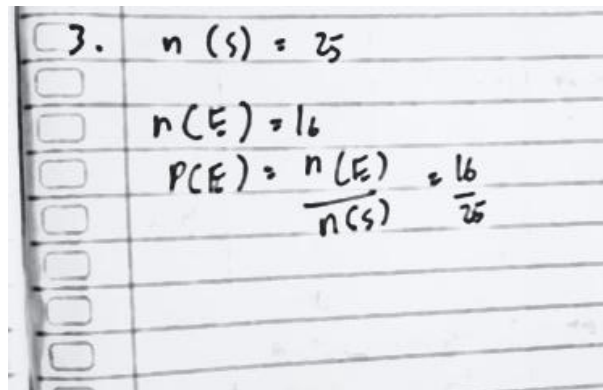 3. n (s) = 25
n(E) = 16
P(E) = n(E)/n(s) = 16/25